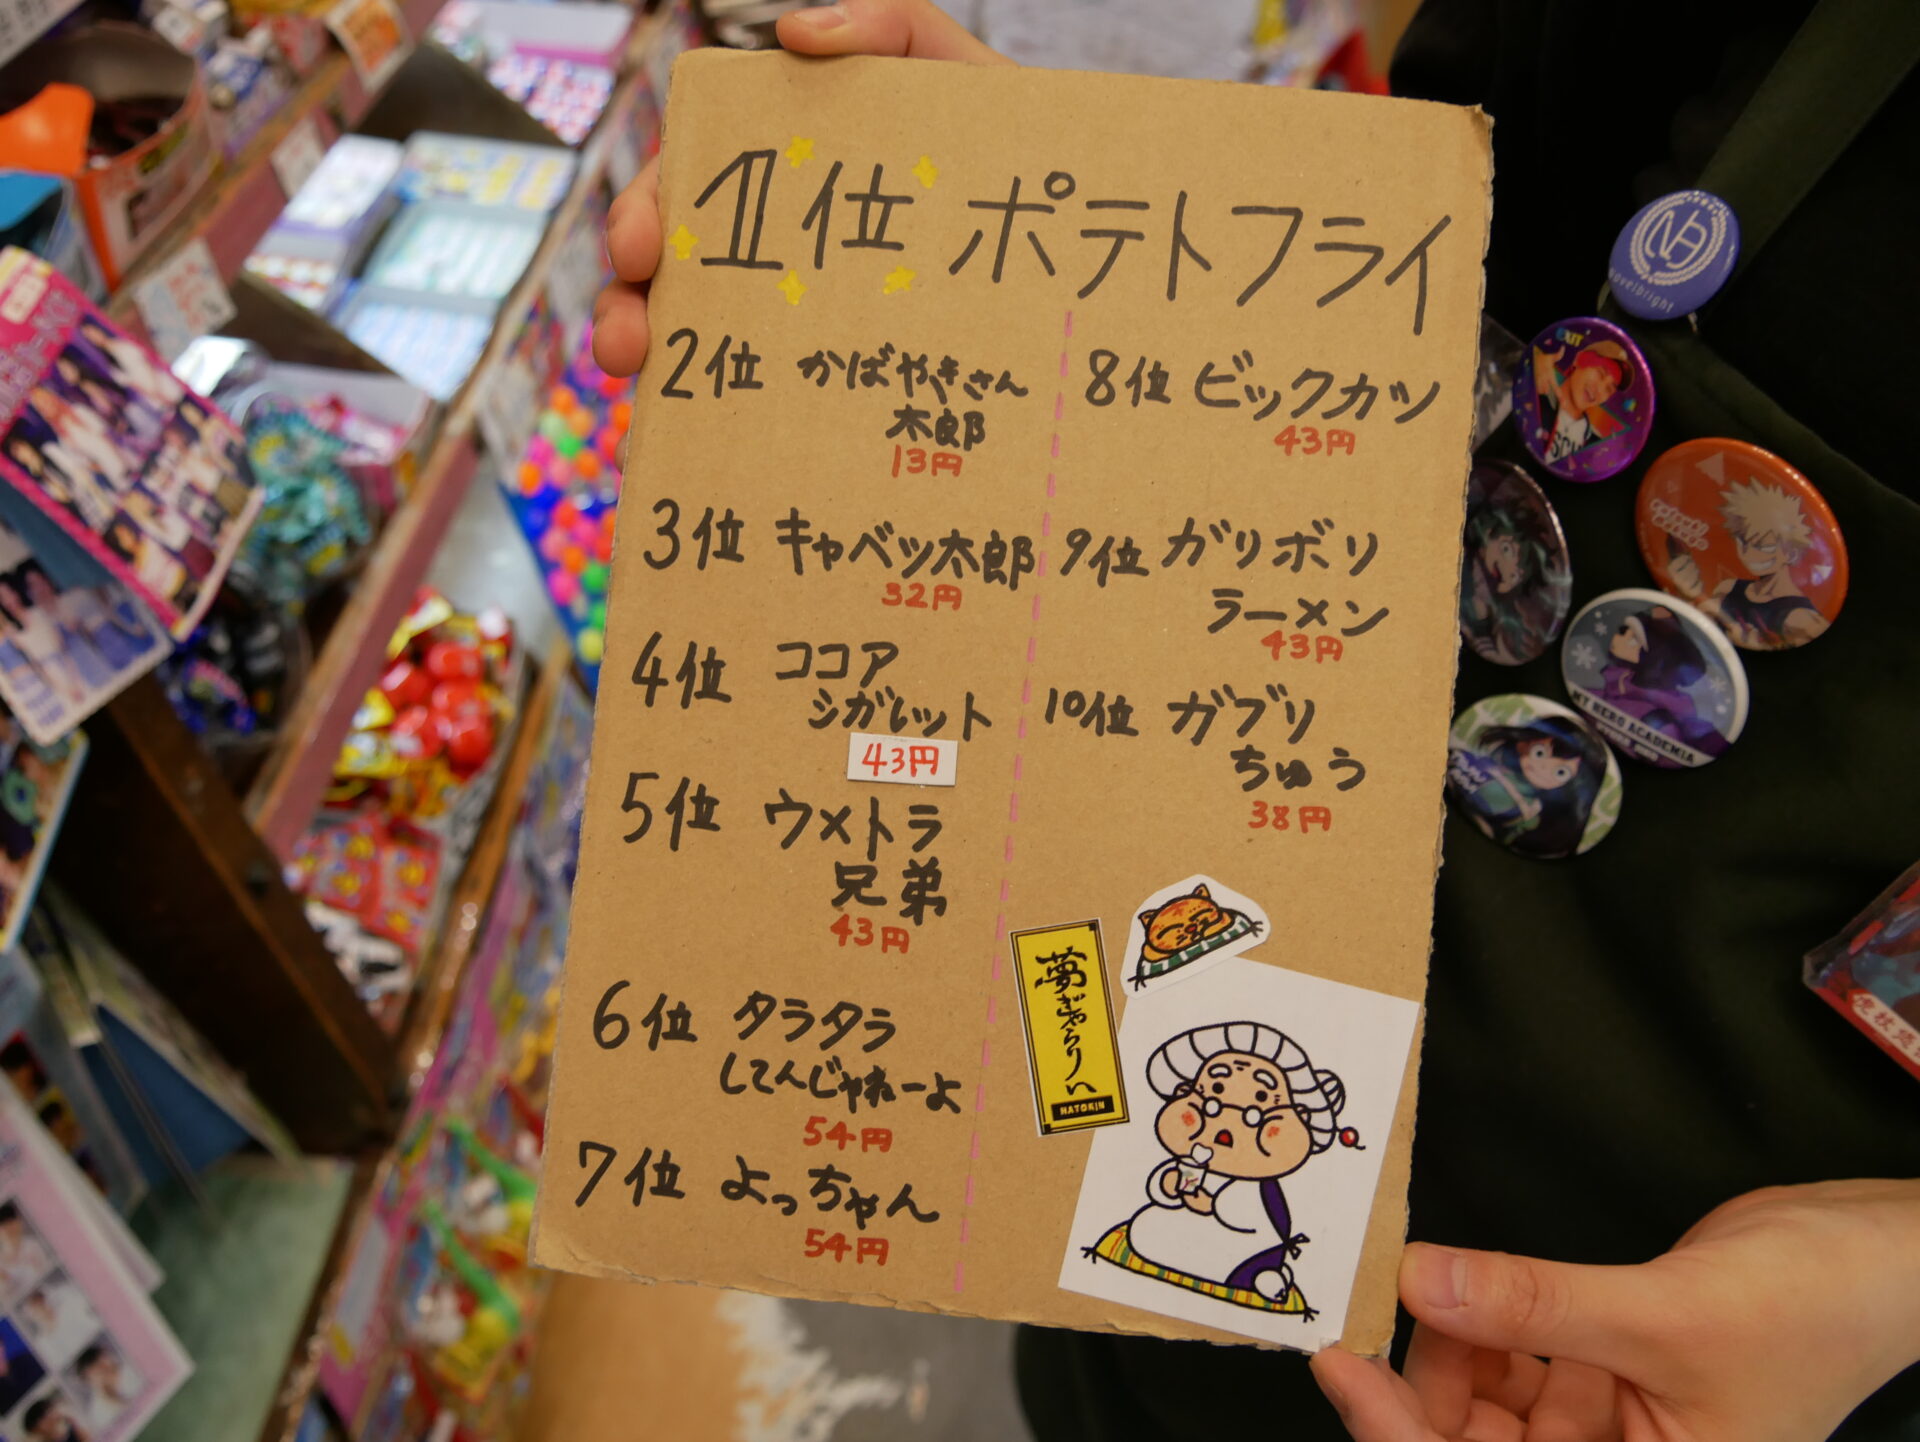 1位 ポテトフライ
2位 かばやきさん
太郎
13円
3位 キャベツ太郎
32円
4位 ココア
シガレット
43円
5位 ウメトラ
兄弟
43円
6位 タラタラ
してんじゃねーよ
54円
7位 よっちゃん
54円
8位 ビックカツ
43円
9位 ガリボリ
ラーメン
43円
10位 ガブリ
ちゅう
38円
夢ぎゃらりぃ
HATOKIN
novelbright
EXIT
MY HERO ACADEMIA